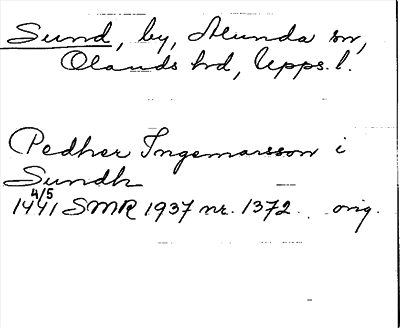 Sund, by, Alunda sn,
Olands hd, Upps. l.
Pedher Ingemarsson i
Sundh
4/5
1441 SMR 1937 nr. 1372. orig.